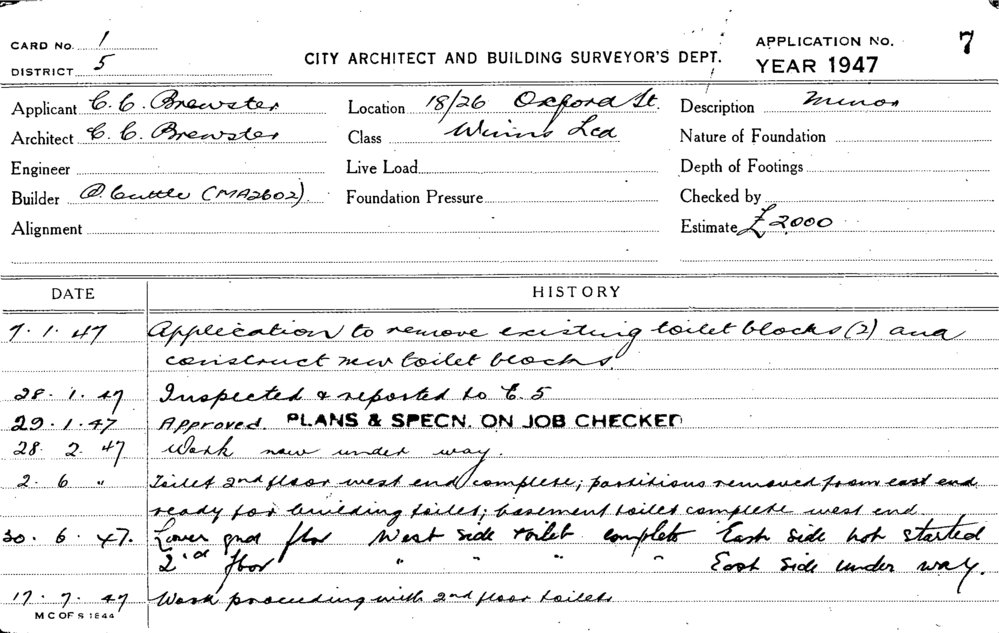 CARD No. 1
DISTRICT 5
CITY ARCHITECT AND BUILDING SURVEYOR'S DEPT.
APPLICATION No. 7
YEAR 1947
Applicant C. C. Brewster
Location 18/26 Oxford St.
Description Minor
Architect C. C. Brewster
Class Winns Ltd
Nature of Foundation
Engineer
Live Load
Depth of Footings
Builder Cuttle (MA2602)
Foundation Pressure
Checked by
Alignment
Estimate £2000
DATE HISTORY
7. 1. 47 Application to remove existing toilet blocks (2) and
construct new toilet blocks.
28. 1. 47 Inspected & reported to C. 5
29. 1. 47 Approved. PLANS & SPECN. ON JOB CHECKED
28. 2. 47 Work now under way.
2. 6 " Toilet 2nd floor west end complete; partitions removed from east end
ready for building toilet; basement toilet complete west end
30. 6. 47. Lower gnd flor West side toilet complete East side not started
2nd floor " " " " East side under way.
17. 7. 47 Work proceeding with 2nd floor toilets
M C OF S 1844